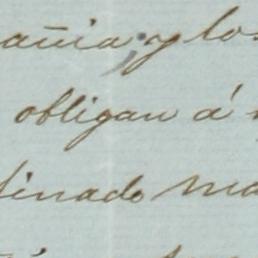 añia, y los
obligan á
tinado ma